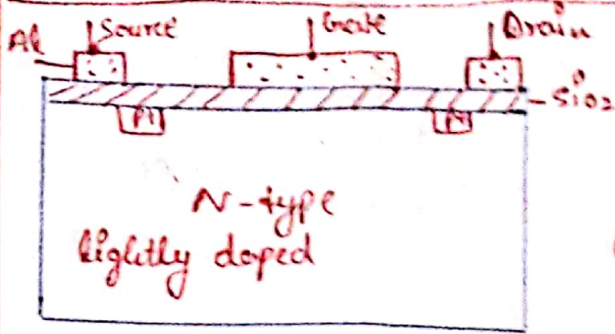 Source Gate Drain
Al
SiO2
P1
N-type
lightly doped